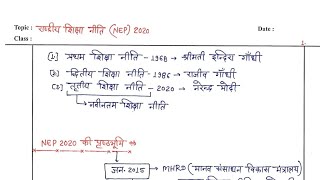 Topic : राष्ट्रीय शिक्षा नीति (NEP) 2020
Date :
Class :
(1) प्रथम शिक्षा नीति - 1968 → श्रीमती इन्दिरा गाँधी
(2) द्वितीय शिक्षा नीति - 1986 → राजीव गाँधी
(3) तृतीय शिक्षा नीति - 2020 → नरेन्द्र मोदी
→ नवीनतम शिक्षा नीति
NEP 2020 की पृष्ठभूमि
जन. 2015 → MHRD (मानव संसाधन विकास मंत्रालय)